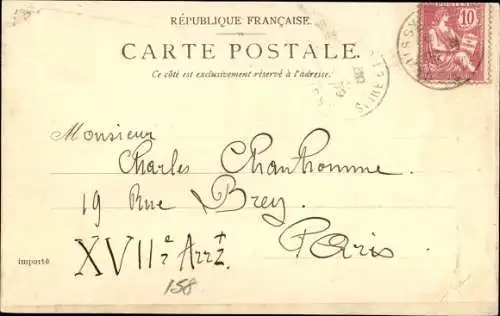 RÉPUBLIQUE FRANÇAISE.
CARTE POSTALE.
Ce côté est exclusivement réservé à l'adresse.
10
Monsieur
Charles Chanthomme
19 Rue Brey
Paris
XVIIe Arrt
importé.
158